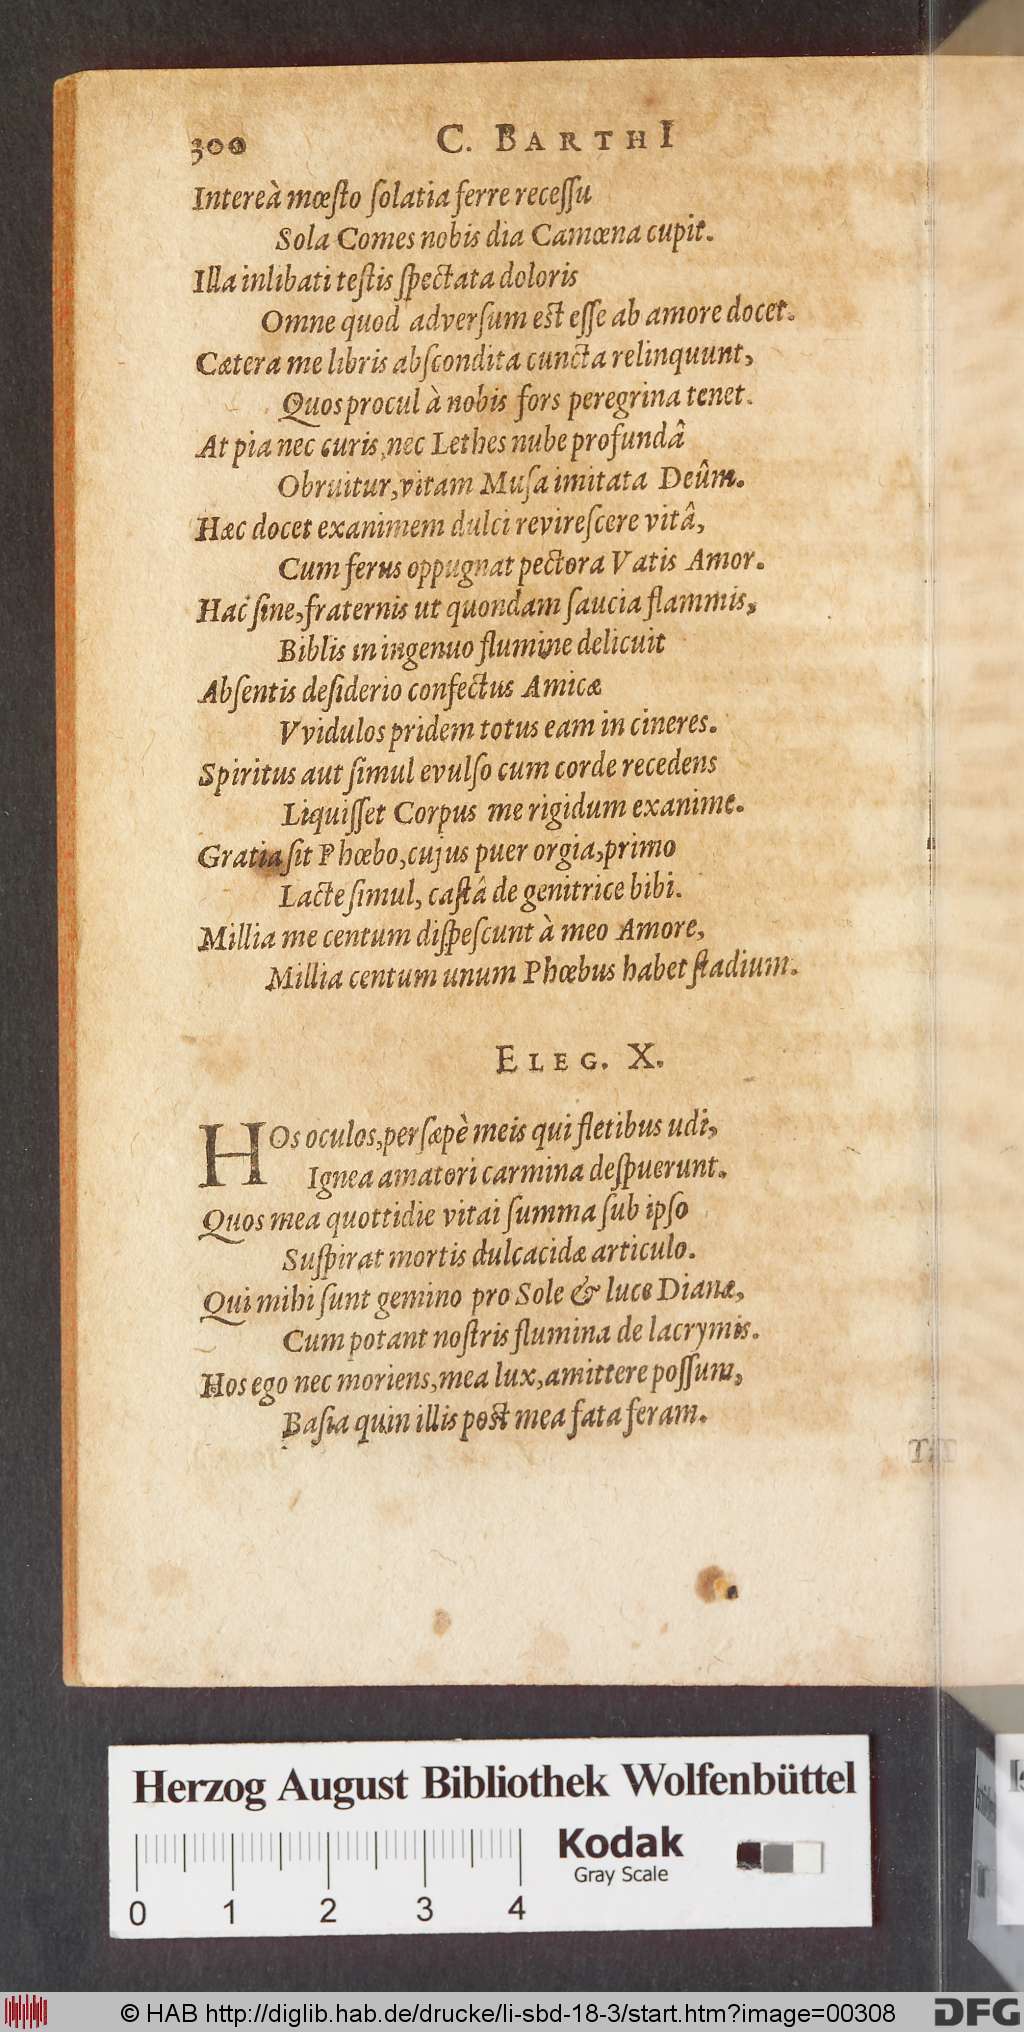 300 C. BARTHI
Intereà mœſto ſolatia ferre receſſu
Sola Comes nobis dia Camœna cupit.
Illa inlibati teſtis ſpectata doloris
Omne quod adverſum eſt eſſe ab amore docet.
Cætera me libris abſcondita cuncta relinquunt,
Quos procul à nobis fors peregrina tenet.
At pia nec curis, nec Lethes nube profundâ
Obruitur, vitam Muſa imitata Deûm.
Hæc docet exanimem dulci revireſcere vitâ,
Cum ferus oppugnat pectora Vatis Amor.
Hac ſine, fraternis ut quondam ſaucia flammis,
Biblis in ingenuo flumine delicuit
Abſentis deſiderio confectus Amicæ
Vvidulos pridem totus eam in cineres.
Spiritus aut ſimul evulſo cum corde recedens
Liquiſſet Corpus me rigidum exanime.
Gratia ſit Phœbo, cujus puer orgia, primo
Lacte ſimul, caſtâ de genitrice bibi.
Millia me centum diſpeſcunt à meo Amore,
Millia centum unum Phœbus habet ſtadium.
ELEG. X.
HOs oculos, per ſæpè meis qui fletibus udi,
Ignea amatori carmina deſpuerunt.
Quos mea quottidie vitai ſumma ſub ipſo
Suſpirat mortis dulcacidæ articulo.
Qui mihi ſunt gemino pro Sole & luce Dianæ,
Cum potant noſtris flumina de lacrymis.
Hos ego nec moriens, mea lux, amittere poſſum,
Baſia quin illis poſt mea fata feram.
Herzog August Bibliothek Wolfenbüttel
Kodak
Gray Scale
0 1 2 3 4
© HAB http://diglib.hab.de/drucke/li-sbd-18-3/start.htm?image=00308
DFG